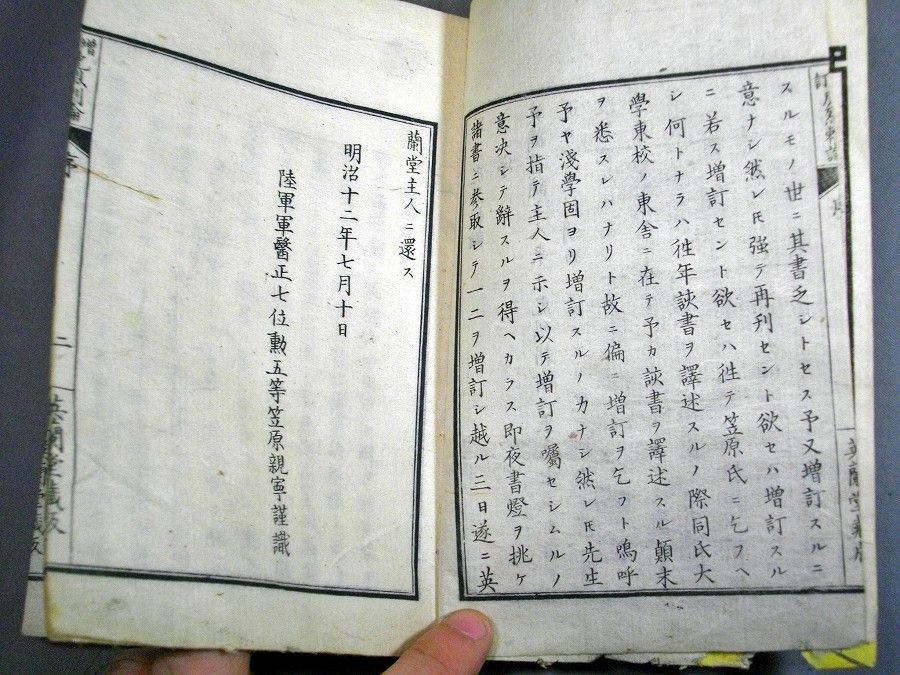 スルモノ世ニ其書乏シトセス予又増訂スルニ
意ナシ然レ𪜈強テ再刊セント欲セハ増訂スル
ニ若ス増訂セント欲セハ徃テ笠原氏ニ乞フヘ
シ何トナラハ徃年該書ヲ譯述スルノ際同氏大
學東校ノ東舎ニ在テ予カ該書ヲ譯述スル顛末
ヲ悉スレハナリト故ニ偏ニ増訂ヲ乞フト嗚呼
予ヤ淺學固ヨリ増訂スルノカナシ然レ𪜈先生
予ヲ指テ主人ニ示シ以テ増訂ヲ囑セシムルノ
意决シテ辭スルヲ得ヘカラス即夜書燈ヲ挑ケ
諸書ニ参取シテ一二ヲ増訂シ越ル三日遂ニ英
蘭堂主人ニ還ス
明治十二年七月十日
陸軍軍醫正七位勲五等笠原親寧謹識
序
二